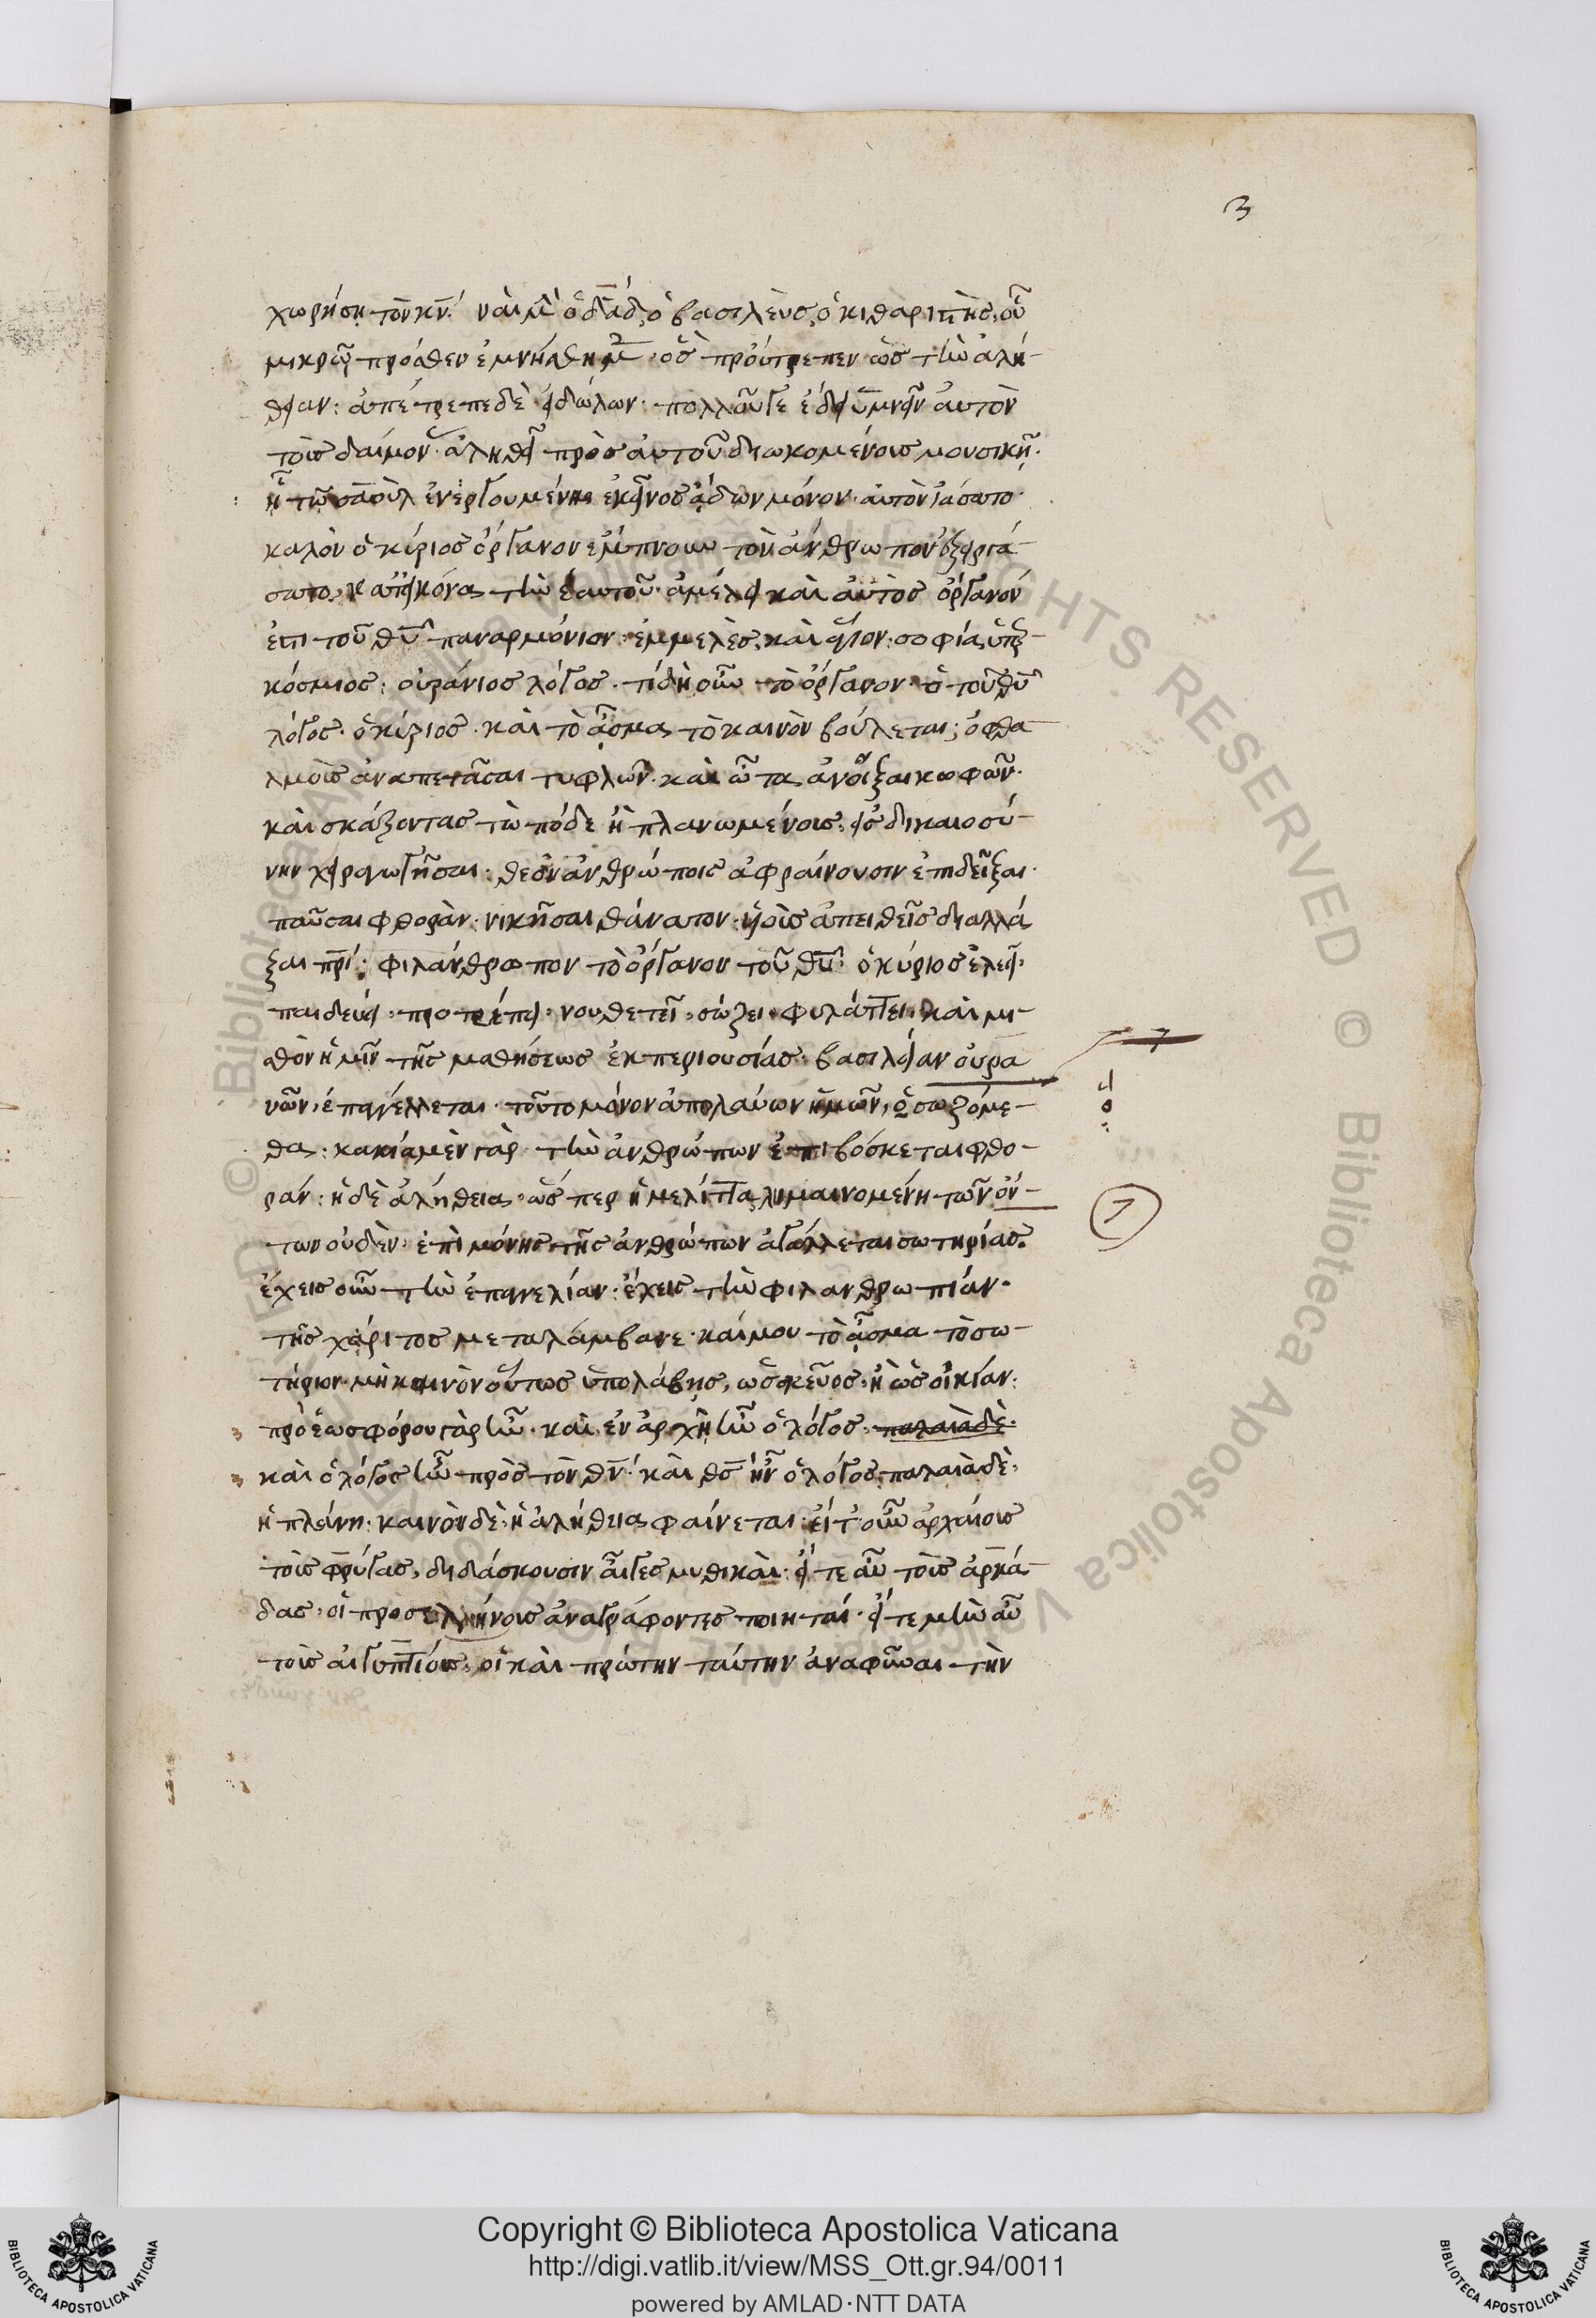 3
χωρήσῃ τὸν κν̅· ναὶ μ ὁ δα̅δ, ὁ βασιλεὺς, ὁ κιθαριστὴς, οὗ
μικρῶ πρόσθεν ἐμνήσθημ · ὃς προύτρεπεν ὡς τὴν ἀλή-
θειαν: ἀπέτρεπε δὲ εἰδώλων: πολλοῦ γε ἔδει ὑμνεῖν αὐτὸν
τοὺς δαίμον · ἀληθεῖ πρὸς αὐτοῦ διωκομένους μουσικῇ·
ᾗ τῶ σαοὺλ ἐνεργουμένης ἐκεῖνος ἄδων μόνον· αὐτὸν ἰάσατο·
καλὸν ὁ κύριος ὄργανον ἔμπνουν τὸν ἄνθρωπον ἐξειργά-
σατο, κατ' εἰκόνα τὴν ἑαυτοῦ· ἀμέλει καὶ αὐτὸς ὄργανόν
ἐστι τοῦ θυ̅ παναρμόνιον· ἐμμελὲς, καὶ ἅγιον· σοφία ὑπερ-
κόσμιος: οὐράνιος λόγος. τί δὴ οὖν τὸ ὄργανον· ὁ τοῦ θυ̅
λόγος· ὁ κύριος. καὶ τὸ ἆσμα τὸ καινὸν βούλεται; ὀφθα-
λμοὺς ἀναπετᾶσαι τυφλῶν· καὶ ὦτα ἀνοῖξαι κωφῶν·
καὶ σκάζοντας τὼ πόδε ἢ πλανωμένους, εἰς δικαιοσύ-
νην χειραγωγῆσαι: θεὸν ἀνθρώποις ἀφραίνουσιν ἐπιδεῖξαι·
παῦσαι φθορὰν· νικῆσαι θάνατον· υἱοὺς ἀπειθεῖς διαλλά
ξαι πρι̅· φιλάνθρωπον τὸ ὄργανον τοῦ θυ̅· ὁ κύριος ἐλεεῖ·
παιδεύει· προτρέπει· νουθετεῖ· σώζει· φυλάττει· καὶ μι-
σθὸν ἡμῖν τῆς μαθήσεως ἐκ περιουσίας· βασιλείαν οὐρα
νῶν, ἐπαγγέλλεται· τοῦτο μόνον ἀπολαύων ἡμῶν, ὃ σωζόμε-
θα: κακία μὲν γὰρ τὴν ἀνθρώπων ἐπιβόσκεται φθο-
ράν: ἡ δὲ ἀλήθεια, ὥσπερ ἡ μέλιττα, λυμαινομένη τῶν ὄν-
των οὐδὲν· ἐπὶ μόνης τῆς ἀνθρώπων ἀγάλλεται σωτηρίας.
ἔχεις οὖν τὴν ἐπαγγελίαν· ἔχεις τὴν φιλανθρωπίαν·
τῆς χάριτος μεταλάμβανε· καί μου τὸ ἆσμα τὸ σω-
τήριον· μὴ καινὸν οὕτως ὑπολάβῃς, ὡς σκεῦος· ἢ ὡς οἰκίαν:
πρὸ ἑωσφόρου γὰρ ἦν· καὶ ἐν ἀρχῇ ἦν ὁ λόγος· παλαιὰ δὲ·
καὶ ὁ λόγος ἦν πρὸς τὸν θν̅· καὶ θς̅ ἦν ὁ λόγος: παλαιὰ δὲ,
ἡ πλάνη· καινὸν δὲ, ἡ ἀλήθεια φαίνεται· εἴτ' οὖν ἀρχαίους
τοὺς φρύγας, διδάσκουσιν αἶγες μυθικαὶ: εἴτε αὖ τοὺς ἀρκά-
δας· οἱ προσελήνους ἀναγράφοντες ποιηταί· εἴτε μὴν αὖ
τοὺς αἰγυπτίους, οἱ καὶ πρώτην ταύτην ἀναφῆναι τὴν
7
7
Copyright © Biblioteca Apostolica Vaticana
http://digi.vatlib.it/view/MSS_Ott.gr.94/0011
powered by AMLAD·NTT DATA
BIBLIOTECA APOSTOLICA VATICANA
BIBLIOTECA APOSTOLICA VATICANA